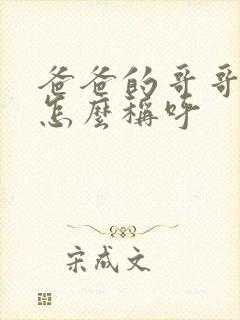 爸爸的哥哥
怎麼稱呼
宋成文